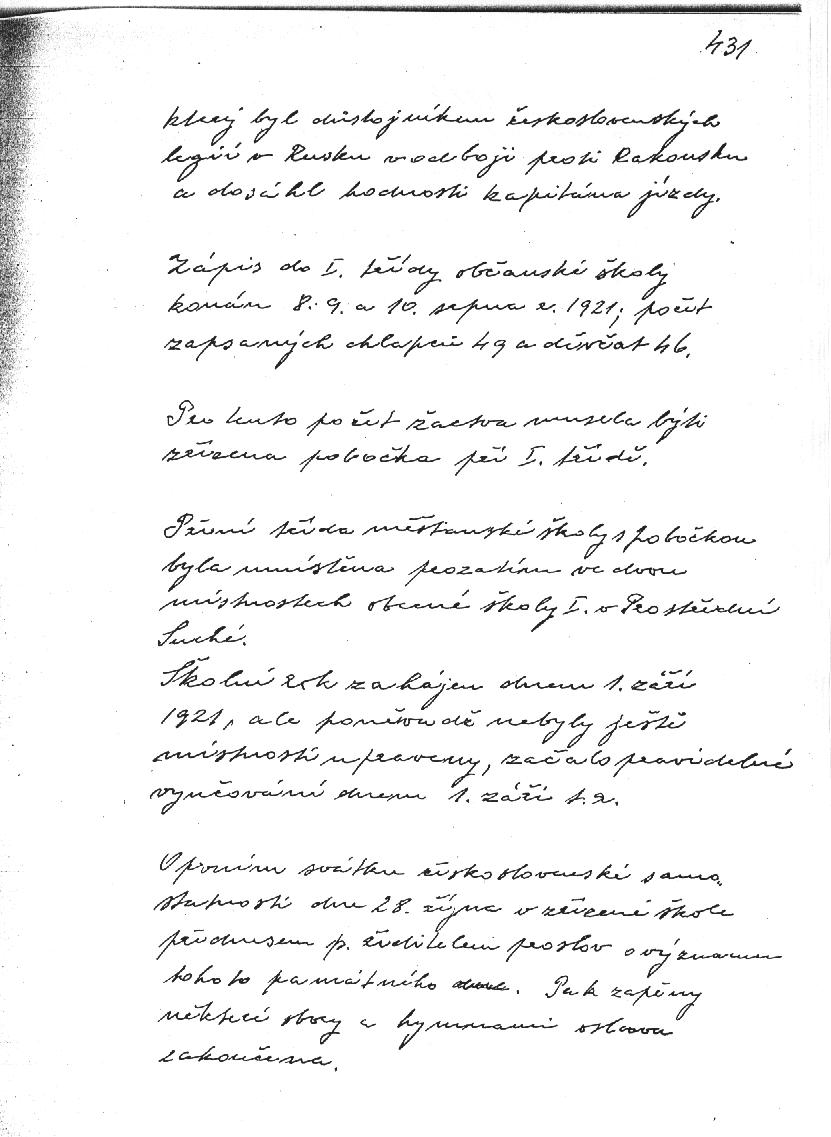 431
který byl důstojníkem československých
legií v Rusku v odboji proti Rakousku
a dosáhl hodnosti kapitána jízdy.
Zápis do I. třídy občanské školy
konán 8. 9. a 10. srpna r. 1921; počet
zapsaných chlapců 49 a děvčat 46.
Pro tento počet žactva musela býti
zřízena pobočka při I. třídě.
První třída měšťanské školy s pobočkou
byla umístěna prozatím ve dvou
místnostech obecné školy I. v Prostřední
Suché.
Školní rok zahájen dnem 1. září
1921, ale poněvadě nebyly ještě
místnosti upraveny, začalo pravidelné
vyučování dnem 1. září t.r.
O prvním svátku československé samo„
statnosti dne 28. října v zřízené škole
přednesen p. ředitelem proslov o významu
tohoto památného dne. Pak zapěny
některé sbory a hymnami oslava
zakončena.